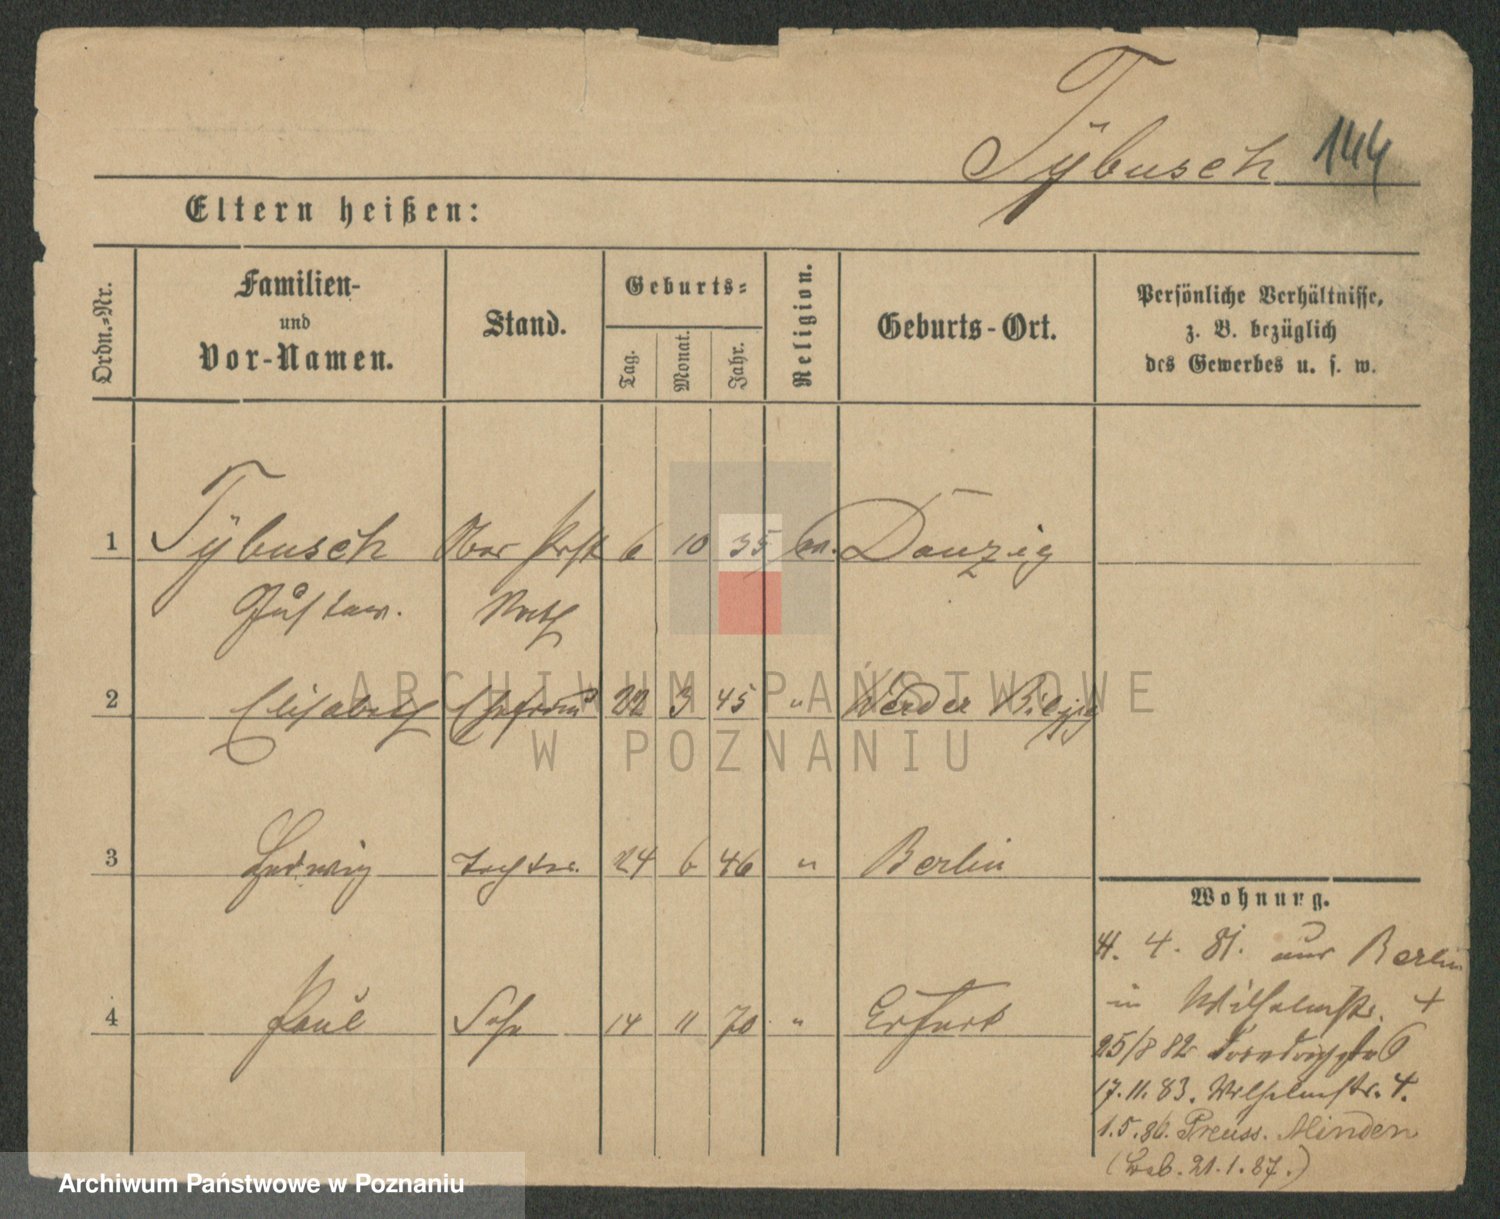 Tÿbusch 144
Eltern heißen:
Ordn.-Nr.
Familien-
und
Vor-Namen.
Stand.
Geburts-
Tag.
Monat.
Jahr.
Religion.
Geburts-Ort.
Persönliche Verhältnisse,
z. B. bezüglich
des Gewerbes u. s. w.
1 Tÿbusch Ober 6 10 35 Danzig
Gustav. Rath
2 Elisabeth Ehefrau 22 3 45 " Werder
3 Hedwig Tochter 24 6 46 " Berlin
4 Paul Sohn 14 11 70 " Erfurt
Wohnung.
4. 81. aus Berlin
in Wilhelmstr. 4
25/8 82 6
17.11.83. Wilhelmstr. 4.
1.5.86. Preuss. Minden
21.1.87.)
ARCHIWUM PAŃSTWOWE
W POZNANIU
Archiwum Państwowe w Poznaniu